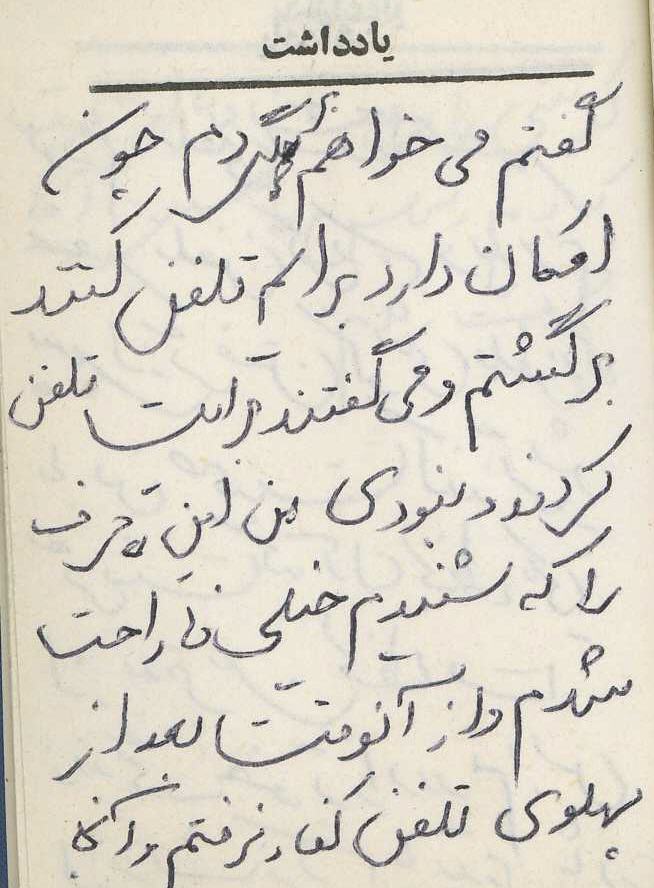 یادداشت
گفتم می خواهم برگردم چون
امکان دارد برایم تلفن کنند
برگشتم و می گفتند برایت تلفن
کردند و نبودی من این حرف
را که شنیدم خیلی ناراحت
شدم و از آنوقت ببعد از
پهلوی تلفن کنار نرفتم و آنها